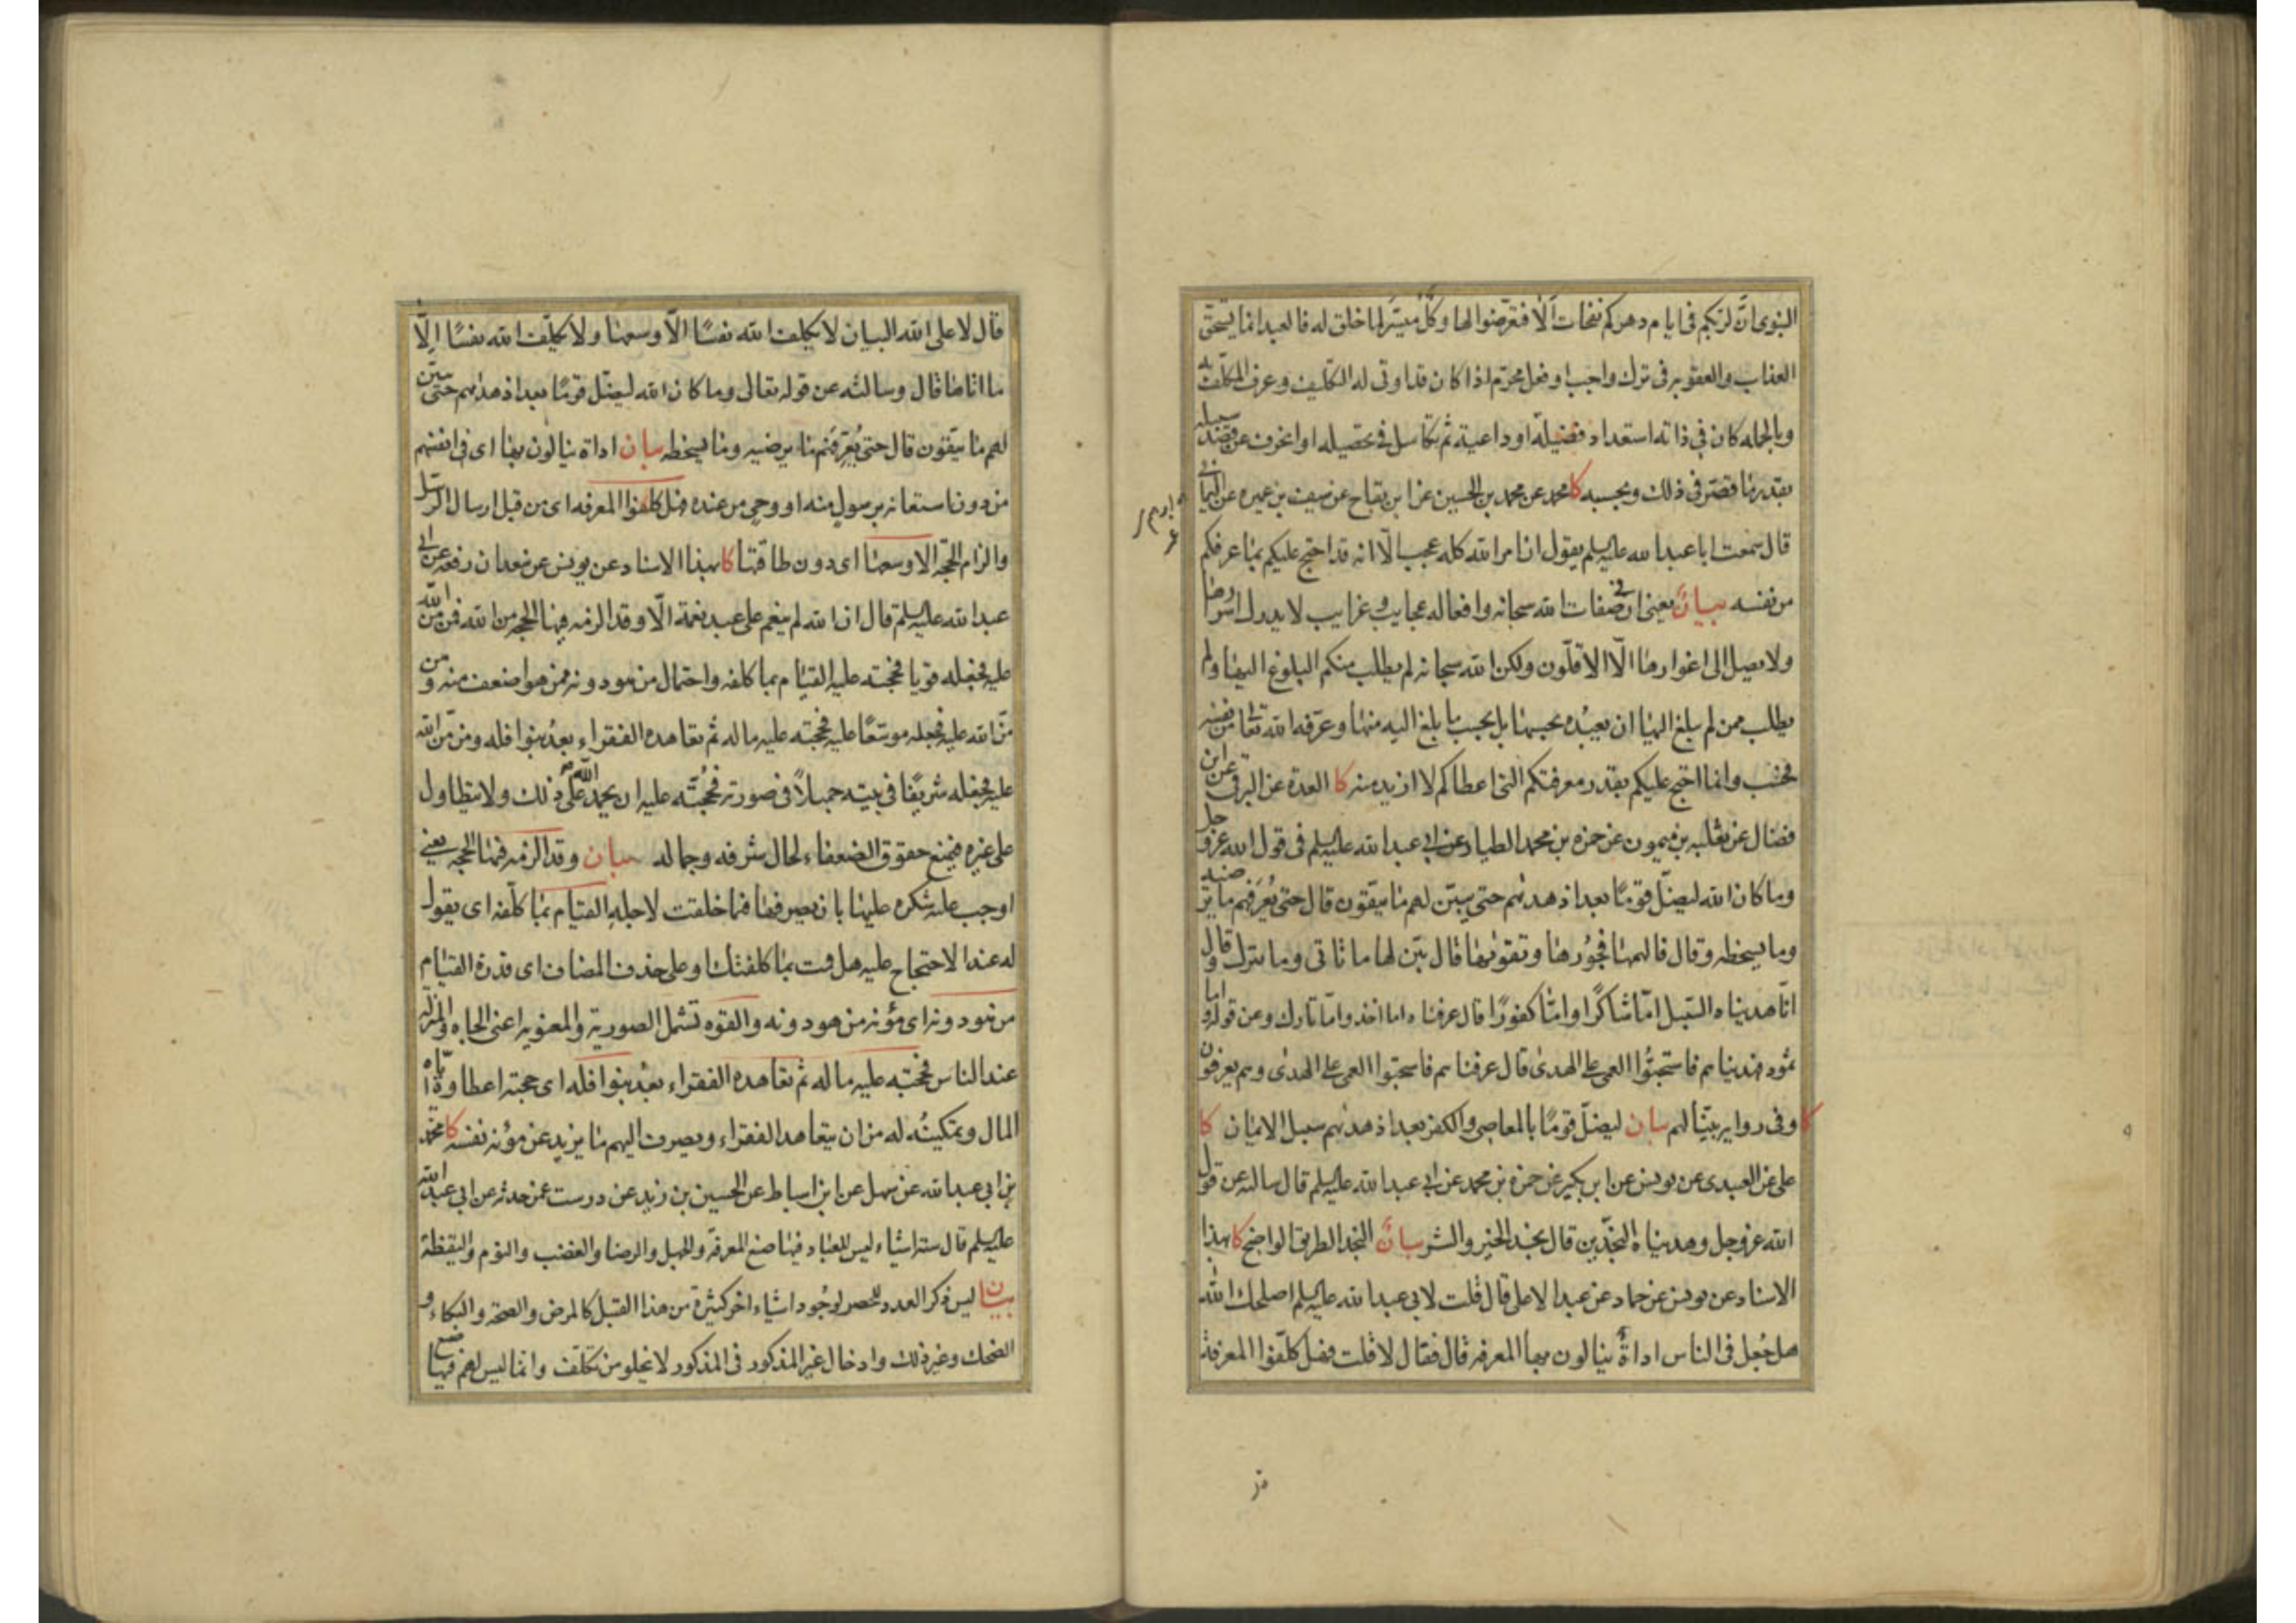 النبوی انّ لربكم فی ایام دهركم نفحات ألا فتعرّضوا لها و كلٌّ میسّر لما خلق له فالعبد انما یستحق
العذاب والعقوبه فی ترك واجب او فعل محرّم اذا كان قد اوتی له التكلیف وعرف المكلّف به
وبالجمله كان فی ذاته استعداد فضیلة او داعیة ثم تكاسل فی تحصیله او انحرف عن قصد سبیله
بقدر ما قصّر فی ذلك وبحسبه كا محمد عن محمد بن الحسین عن ابن بقاح عن سیف بن عمیره عن الیمانی
قال سمعت ابا عبد الله علیه السلم یقول ان امر الله كله عجب الّا انه قد احتج علیكم بما عرفكم
من نفسه بیان یعنی ان فی صفات الله سبحانه وافعاله عجایب و غرایب لا یدرك اسرارها
ولا یصل الی اغوارها الّا الاقلّون ولكن الله سبحانه لم یطلب منكم البلوغ الیها ولم
یطلب ممن لم یبلغ الیها ان یعبده بحسبها بل بحسب ما بلغ الیه منها وعرّفه الله تعا من نفسه
فحسب وانما احتج علیكم بقدر معرفتكم التی اعطاكم لا ازید منه كا العدة عن البرقی عن ابن
فضال عن ثعلبه بن میمون عن حمزه بن محمد الطیار عن ابی عبد الله علیه السلم فی قول الله عز و جل
وما كان الله لیضلّ قومًا بعد اذ هدیٰهم حتی یبیّن لهم ما یتّقون قال حتی یُعَرِّفهم ما یرضیه
وما یسخطه وقال فالهمها فجُورها وتقوٰیها قال بیّن لها ما تاتی وما تترك وقال
انّا هدیناه السّبیل امّا شاكرًا وامّا كفورًا قال عرفناه اما اخذ وامّا تارك وعن قوله واما
ثمود فهدیناهم فاستحبُّوا العمی علی الهدیٰ قال عرفناهم فاستحبوا العمی علی الهدٰی وهم یعرفون
كا وفی روایه بیّنا لهم بیان لیضلّ قومًا بالمعاصی والكفر بعد اذ هدیٰهم سبیل الایمان كا
علی عن العبیدی عن یونس عن ابن بكیر عن حمزه بن محمد عن ابی عبد الله علیه السلم قال سالته عن قول
الله عز وجل وهدیناه النجدین قال نجد الخیر والشر بیان النجد الطریق الواضح كا بهذا
الاسناد عن یونس عن حماد عن عبد الاعلی قال قلت لابی عبد الله علیه السلم اصلحك الله
هل جُعل فی الناس اداةٌ ینالون بها المعرفه قال فقال لا قلت فهل كلّفوا المعرفة
قال لا علی الله البیان لا یكلف الله نفسًا الّا وسعها ولا یكلّف الله نفسًا اِلّا
ما اتاها قال وسالته عن قوله تعالی وما كان الله لیضلّ قومًا بعد اذ هدٰیهم حتی یبیّن
لهم ما یتّقون قال حتی یُعَرِّفَهم ما یرضیه وما یسخطه بیان اداة ینالون بها ای فی انفسهم
من دون استعانه برسول منه او وحی من عنده فهل كلفوا المعرفه ای من قبل ارسال الرسل
والزام الحجّه الا وسعها ای دون طاقتها كا بهذا الاسناد عن یونس عن سعدان رفعه عن ابی
عبد الله علیه السلم قال ان الله لم ینعم علی عبد نعمة الّا وقد الزمه فیها الحجه من الله فمن منّ الله
علیه فجعله قویا فحجته علیه القیام بما كلفه واحتمال من هو دونه ممن هو اضعف منه و من
منّ الله علیه فجعله موسّعًا علیه فحجته علیه ماله ثم تعاهده الفقراء بعدُ بنوافله ومن منّ الله
علیه فجعله شریفًا فی بیته جمیلاً فی صورته فحُجّته علیه ان یحمد الله علی ذلك ولا یتطاول
علی غیره فیمنع حقوق الضعفاء لحال شرفه وجماله بیان وقد الزمه فیها الحجه یعنی
اوجب علیه شكره علیها بان یصرفها فیما خلقت لاجله القیام بما كلّفه ای یقول
له عند الاحتجاج علیه هل قمت بما كلفتك او علی حذف المضاف ای قدرة القیام
من هو دونه ای مؤنه من هو دونه والقوه تشمل الصوریة والمعنویه اعنی الجاه والمنزله
عند الناس فحجته علیه ماله ثم تعاهده الفقراء بعدُ بنوافله ای حجته اعطاوه ایّاه
المال وتمكینُه له من ان یتعاهد الفقراء ویصرف الیهم ما یزید عن مؤنه نفسه كا محمّد
بن ابی عبد الله عن سهل عن ابن اسباط عن الحسین بن زید عن درست عمن حدثه عن ابی عبد الله
علیه السلم قال ستة اشیاء لیس للعباد فیها صنع المعرفة والجهل والرضا والغضب والنوم والیقظة
بیان لیس ذكر العدد للحصر لوجُود اشیاء اخر كثیرة من هذا القبیل كالمرض والصحة والبكاء و
الضحك وغیر ذلك وادخال غیر المذكور فی المذكور لا یخلو من تكلّف وانما لیس لهم فیها صنع